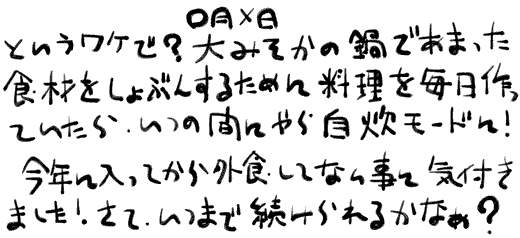 〇月×日
というワケで？大みそかの鍋であまった
食材をしょぶんするために料理を毎日作っ
ていたら、いつの間にやら自炊モードに！
今年に入ってから外食してない事に気付き
ました！さて、いつまで続けられるかなぁ？